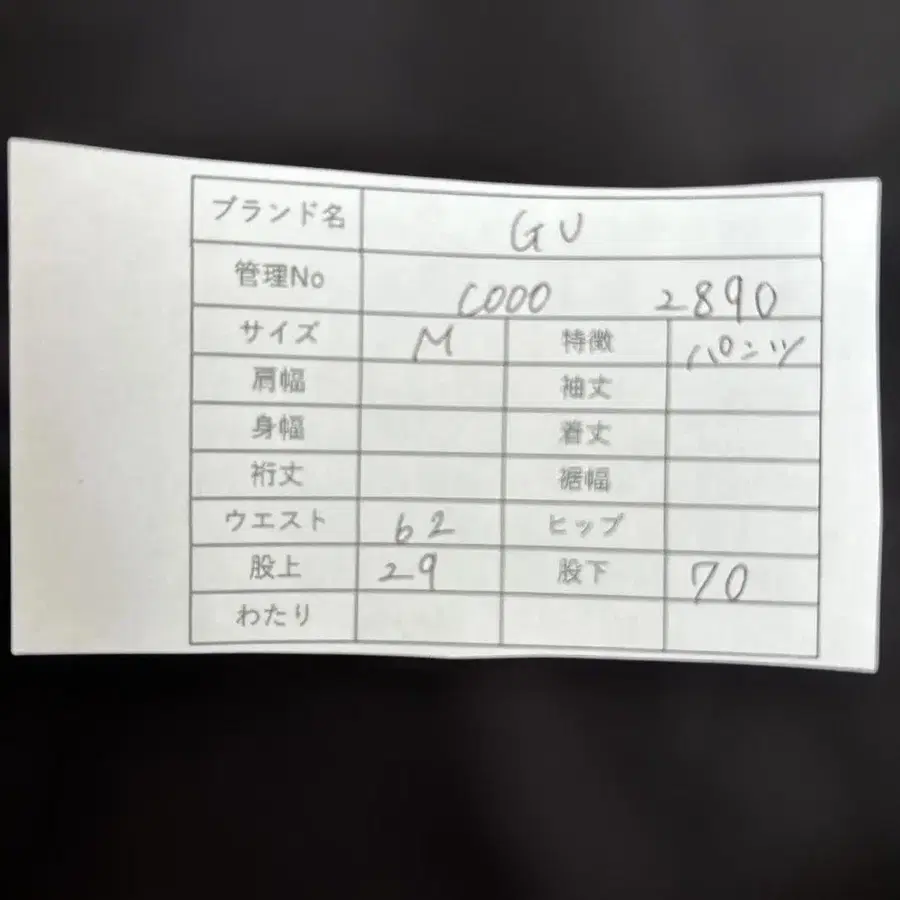 ブランド名 GU
管理No C000 2890
サイズ M 特徴 パンツ
肩幅 袖丈
身幅 着丈
裄丈 裾幅
ウエスト 62 ヒップ
股上 29 股下 70
わたり